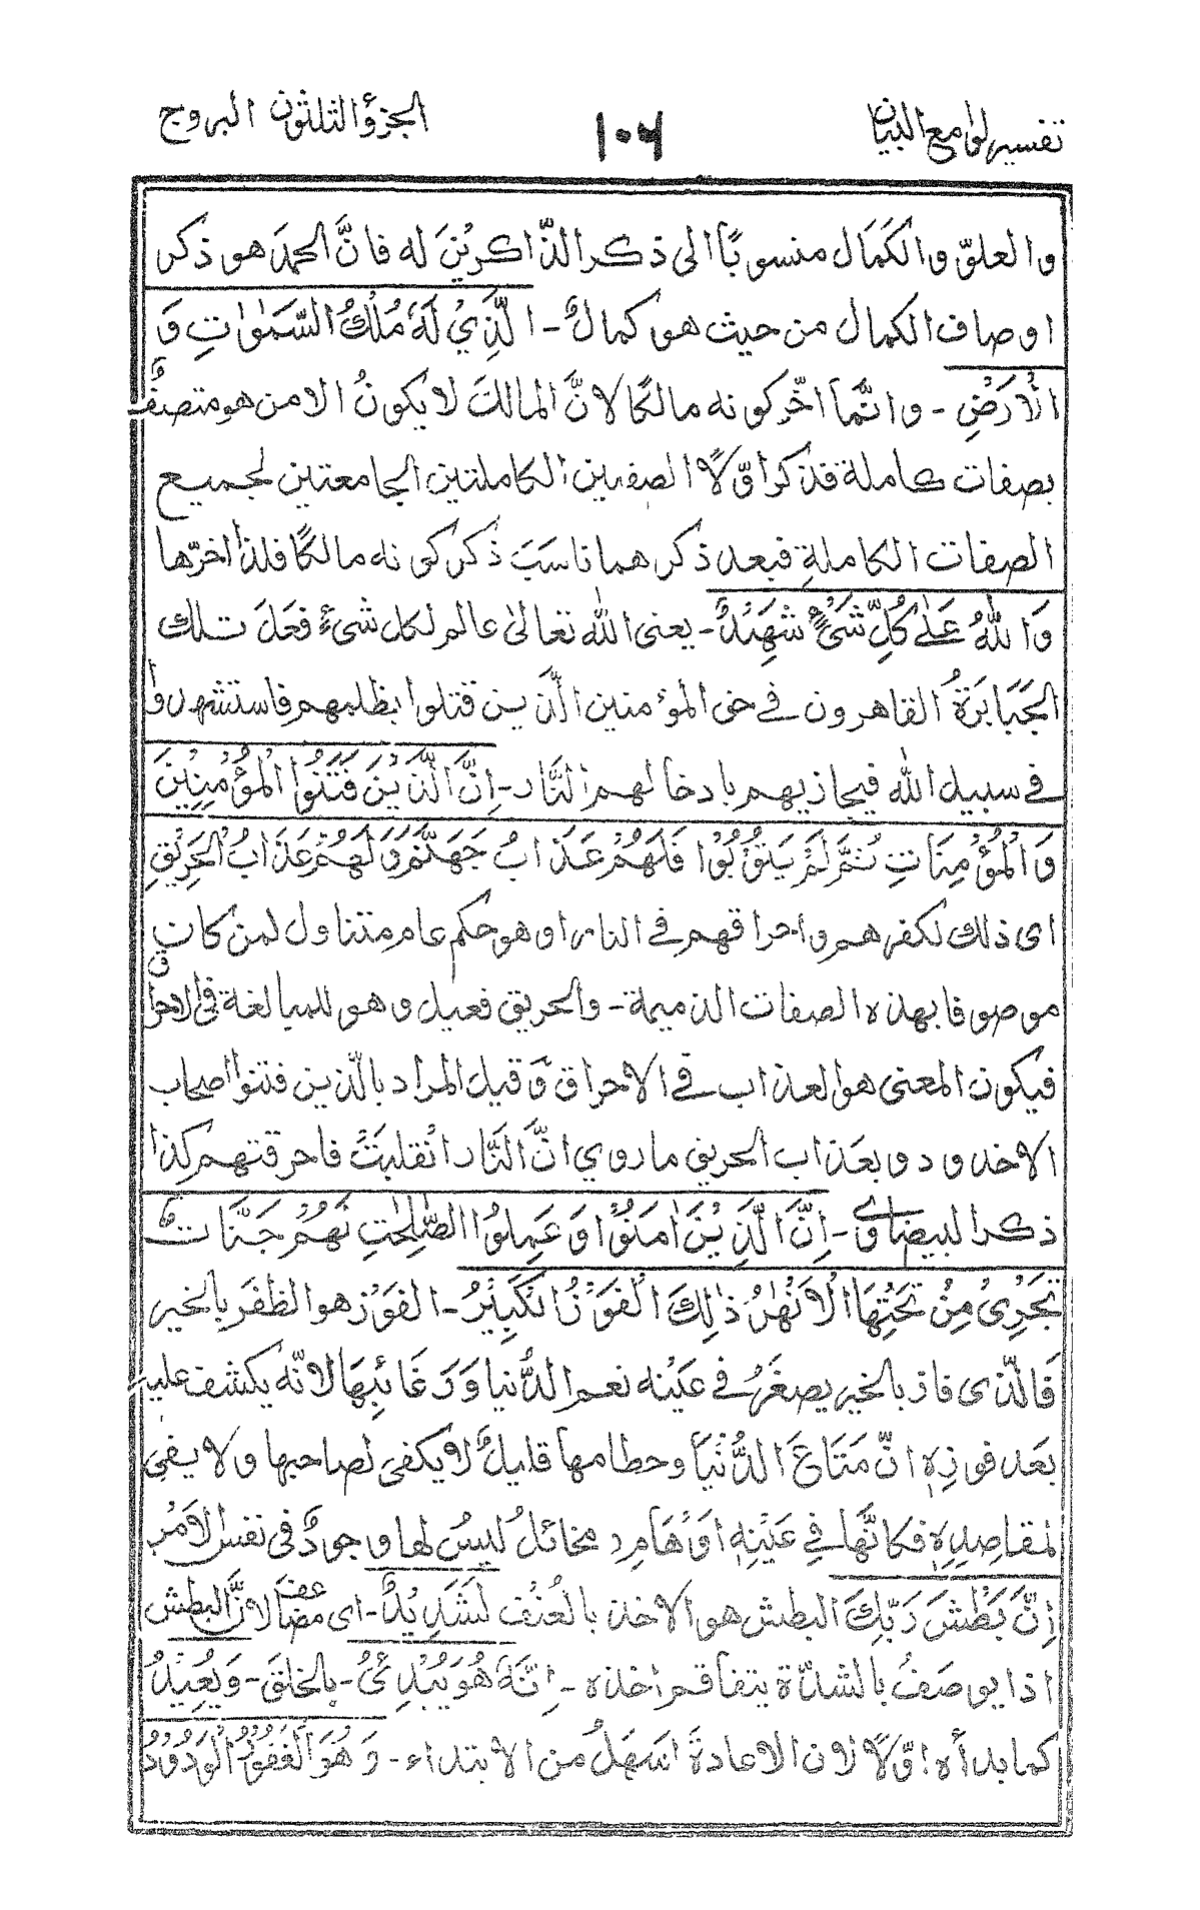 تفسير لوامع البيان ١٠٦ الجزء الثلثون البروج
والعلوّ والكَمَال منسوبًا الى ذكر الذّاكرِيْنَ له فانَّ الحمدَ هو ذكر
اوصاف الكمال من حيث هو كمالٌ - الَّذِيْ لَهٗ مُلْكُ السَّمٰوٰاتِ وَ
الْاَرْضِ - وانَّمَا اخّر كونه مالكًا لانَّ المالكَ لا يكونُ الا من هو متصفٌ
بصفات كاملة فذكر اوّلًا الصفتين الكاملتين الجامعتين لجميع
الصفات الكاملةِ فبعد ذكرهما ناسَبَ ذكر كونه مالكًا فلذا اخرّها
وَاللّٰهُ عَلٰى كُلِّ شَيْءٍ شَهِيْدٌ - يعنى الله تعالىٰ عالم لكل شيءٍ فَعَلَ تلك
الجَبَابَرَةُ القاهرون في حق المؤمنين الّذين قتلوا بظلمهم فاستشهروا
في سبيل الله فيجازيهم بادخالهم النَّار - اِنَّ الَّذِيْنَ فَتَنُوا الْمُؤْمِنِيْنَ
وَالْمُؤْمِنَاتِ ثُمَّ لَمْ يَتُوْبُوْا فَلَهُمْ عَذَابُ جَهَنَّمَ وَلَهُمْ عَذَابُ الْحَرِيْقِ
اى ذلك لكفرهم واحراقهم في النار او هو حكم عام متناول لمن كان
موصوفا بهذه الصفات الذميمة - والحريق فعيل وهو للمبالغة في الاحراق
فيكون المعنى هو العذاب في الاحراق وقيل المراد بالّذين فتنوا اصحاب
الاخدود وبعَذاب الحريق ما روي انَّ النَّار انْقلبَتْ فاحرقتهم كذا
ذكر البيضاوى - اِنَّ الَّذِيْنَ اٰمَنُوْا وَعَمِلُوا الصّٰلِحٰتِ لَهُمْ جَنَّاتٌ
تَجْرِيْ مِنْ تَحْتِهَا الْاَنْهٰرُ ذٰلِكَ الْفَوْزُ الْكَبِيْرُ - الفوز هو الظفَر بالخير
فَالّذى فاز بالخير يصغَرُ في عَيْنه نعم الدُّنيا وَرَغَائِبِهَا لانّه يكشف عليه
بَعد فوزِهٖ انّ مَتَاعَ الدُّنْيَا وحطامها قليلٌ لا يكفى لصاحبها ولا يفى
لمقاصدِهٖ فكانَّها في عَيْنِهٖ اَوْهَام ومخائلُ ليسُ لها وجودٌ فى نفس الاَمْر
اِنَّ بَطْشَ رَبِّكَ البطش هو الاخذ بالعُنْف لَشَدِيْدٌ - اى مضاعف لانَّ البطش
اذا يوصَفُ بالشدّة يتفاقم اخذه - اِنَّهٗ هُوَ يُبْدِئُ - بالخلق - وَيُعِيْدُ
كما بدأه اوّلًا لان الاعادةَ اسهَلُ من الابتداء - وَهُوَ الْغَفُوْرُ الْوَدُوْدُ